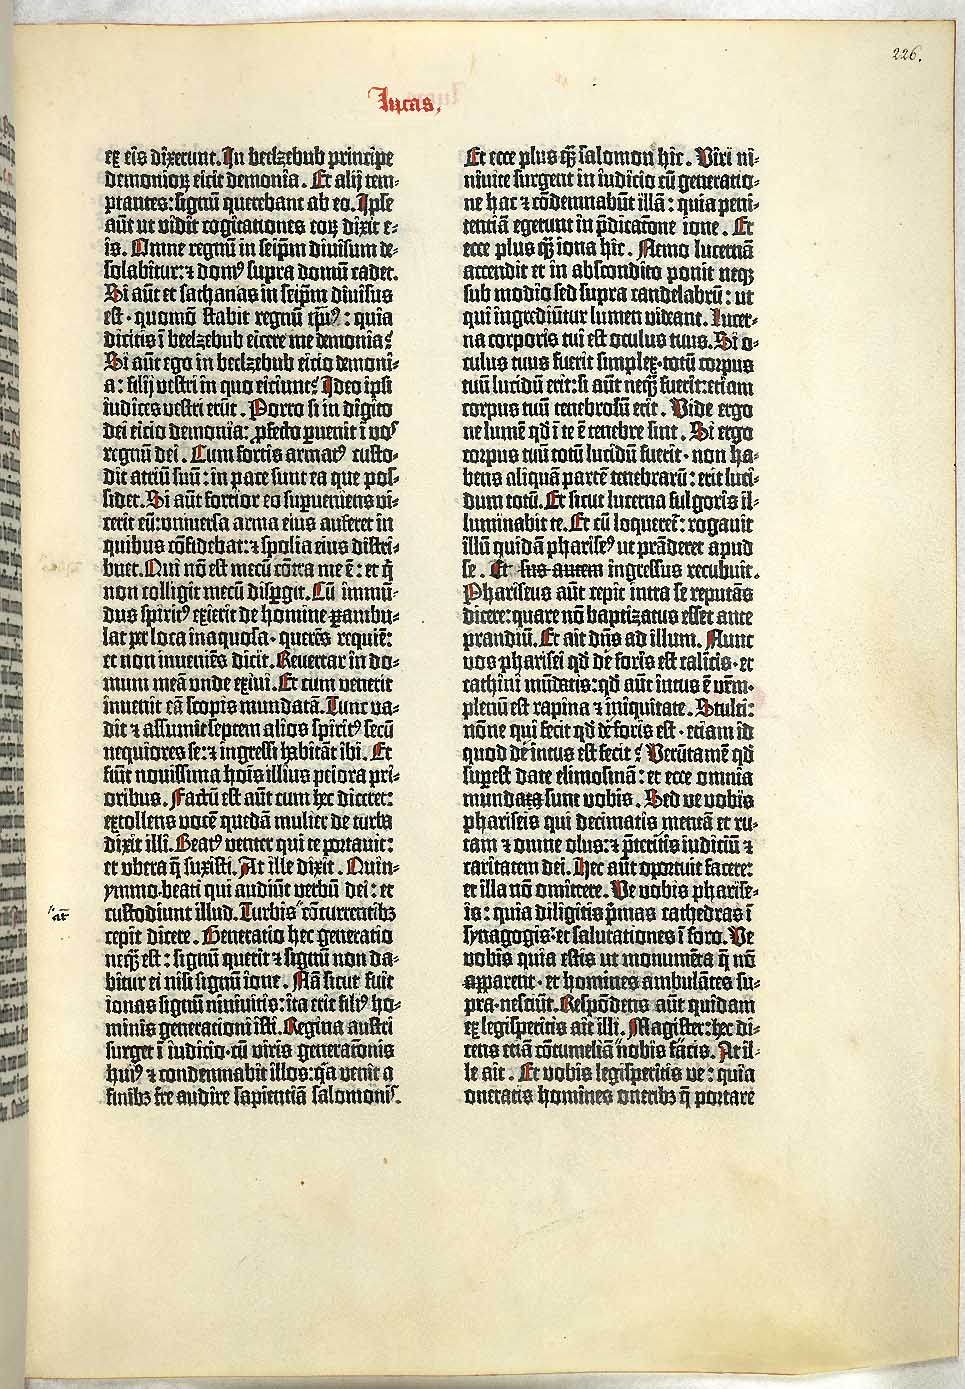 226.
Lucas.
ex eis dixerunt. In beelzebub principe
demonioꝝ eicit demonia. Et alij tem-
ptantes: signū querebant ab eo. Ipse
aūt ut vidit cogitationes eoꝝ dixit e-
is. Omne regnū in seip̄m divisum de-
solabitur: ⁊ domꝰ supra domū cadet.
Si aūt et sathanas in seip̄m divisus
est · quomō stabit regnū ip̄iꝰ : quia
dicitis ī beelzebub eicere me demonia?
Si aūt ego in beelzebub eicio demoni-
a: filij vestri in quo eiciunt? Ideo ipsi
iudices vestri erūt. Porro si in digito
dei eicio demonia: ꝓfecto ꝑuenit ī vos
regnū dei. Cum fortis armatꝰ custo-
dit atriū suū: in pace sunt ea que pos-
sidet. Si aūt fortior eo suꝑueniens vi-
cerit eū: vniuersa arma eius auferet in
quibus cōfidebat: ⁊ spolia eius distri-
buet. Qui nō est mecū cōtra me ē: et q̄
non colligit mecū disꝑgit. Cū immū-
dus spiritꝰ exierit de homine ꝑambu-
lat per loca inaquosa · querēs requiē:
et non inueniēs dicit. Reuertar in do-
mum meā vnde exiui. Et cum venerit
inuenit eā scopis mundatā. Tunc va-
dit ⁊ assumit septem alios spiritꝰ secū
nequiores se: ⁊ ingressi habitāt ibi. Et
fiūt nouissima hoīs illius peiora pri-
oribus. Factū est aūt cum hec diceret:
extollens vocē quedā mulier de turba
dixit illi. Beatꝰ venter qui te portauit:
et vbera q̄ suxisti. At ille dixit. Quin-
ymmo · beati qui audiūt verbū dei: et
custodiunt illud. Turbis" cōcurrentibꝫ
"aūt
cepit dicere. Generatio hec generatio
neq̄ꝫ est: signū querit ⁊ signū non da-
bitur ei nisi signū ione. Nā sicut fuit
ionas signū niniuitis: ita erit filiꝰ ho-
minis generationi isti. Regina austri
surget ī iudicio · cū viris generatōnis
huiꝰ ⁊ condemnabit illos: q̄a venit a
finibꝫ tr̄e audire sapientiā salomonis.
Et ecce plus q̄ꝫ salomon hic. Viri ni-
niuite surgent in iudicio cū generatio-
ne hac ⁊ cōdemnabūt illā: quia peni-
tentiā egerunt in p̄dicatōne ione. Et
ecce plus q̄ꝫ iona hic. Nemo lucernā
accendit et in abscondito ponit neqꝫ
sub modio sed supra candelabrū: ut
qui ingrediūtur lumen videant. Lucer-
na corporis tui est oculus tuus. Si o-
culus tuus fuerit simplex · totū corpus
tuū lucidū erit: si aūt neq̄ꝫ fuerit: etiam
corpus tuū tenebrosū erit. Vide ergo
ne lumē qd̄ ī te ē tenebre sint. Si ergo
corpus tuū totū lucidū fuerit · non ha-
bens aliquā partē tenebrarū: erit luci-
dum totū. Et sicut lucerna fulgoris il-
luminabit te. Et cū loqueret̄: rogauit
illū quidā phariseꝰ ut prāderet apud
se. Et ihs autem ingressus recubuit.
Phariseus aūt cepit intra se reputās
dicere: quare nō baptizatus esset ante
prandiū. Et ait dn̄s ad illum. Nunc
vos pharisei qd̄ de foris est calicis · et
cathini mūdatis: qd̄ aūt intus ē vr̄m ·
plenū est rapina ⁊ iniquitate. Stulti:
nōne qui fecit qd̄ de foris est · etiam id
quod de intus est fecit? Verūtamē qd̄
suꝑest date elimosinā: et ecce omnia
munda sunt vobis. Sed ve vobis
phariseis qui decimatis mentā et ru-
tam ⁊ omne olus: ⁊ p̄teritis iudiciū ⁊
caritatem dei. Hec aūt oportuit facere:
et illa nō omittere. Ve vobis pharise-
is: quia diligitis p̄mas cathedras ī
synagogis: et salutationes ī foro. Ve
vobis quia estis ut monumēta q̄ nō
apparent · et homines ambulātes su-
pra · nesciūt. Respōdens aūt quidam
ex legisperitis ait illi. Magister: hec di-
cens etiā cōtumeliā "nobis facis. At il-
le ait. Et vobis legisperitis ve: quia
oneratis homines oneribꝫ q̄ portare